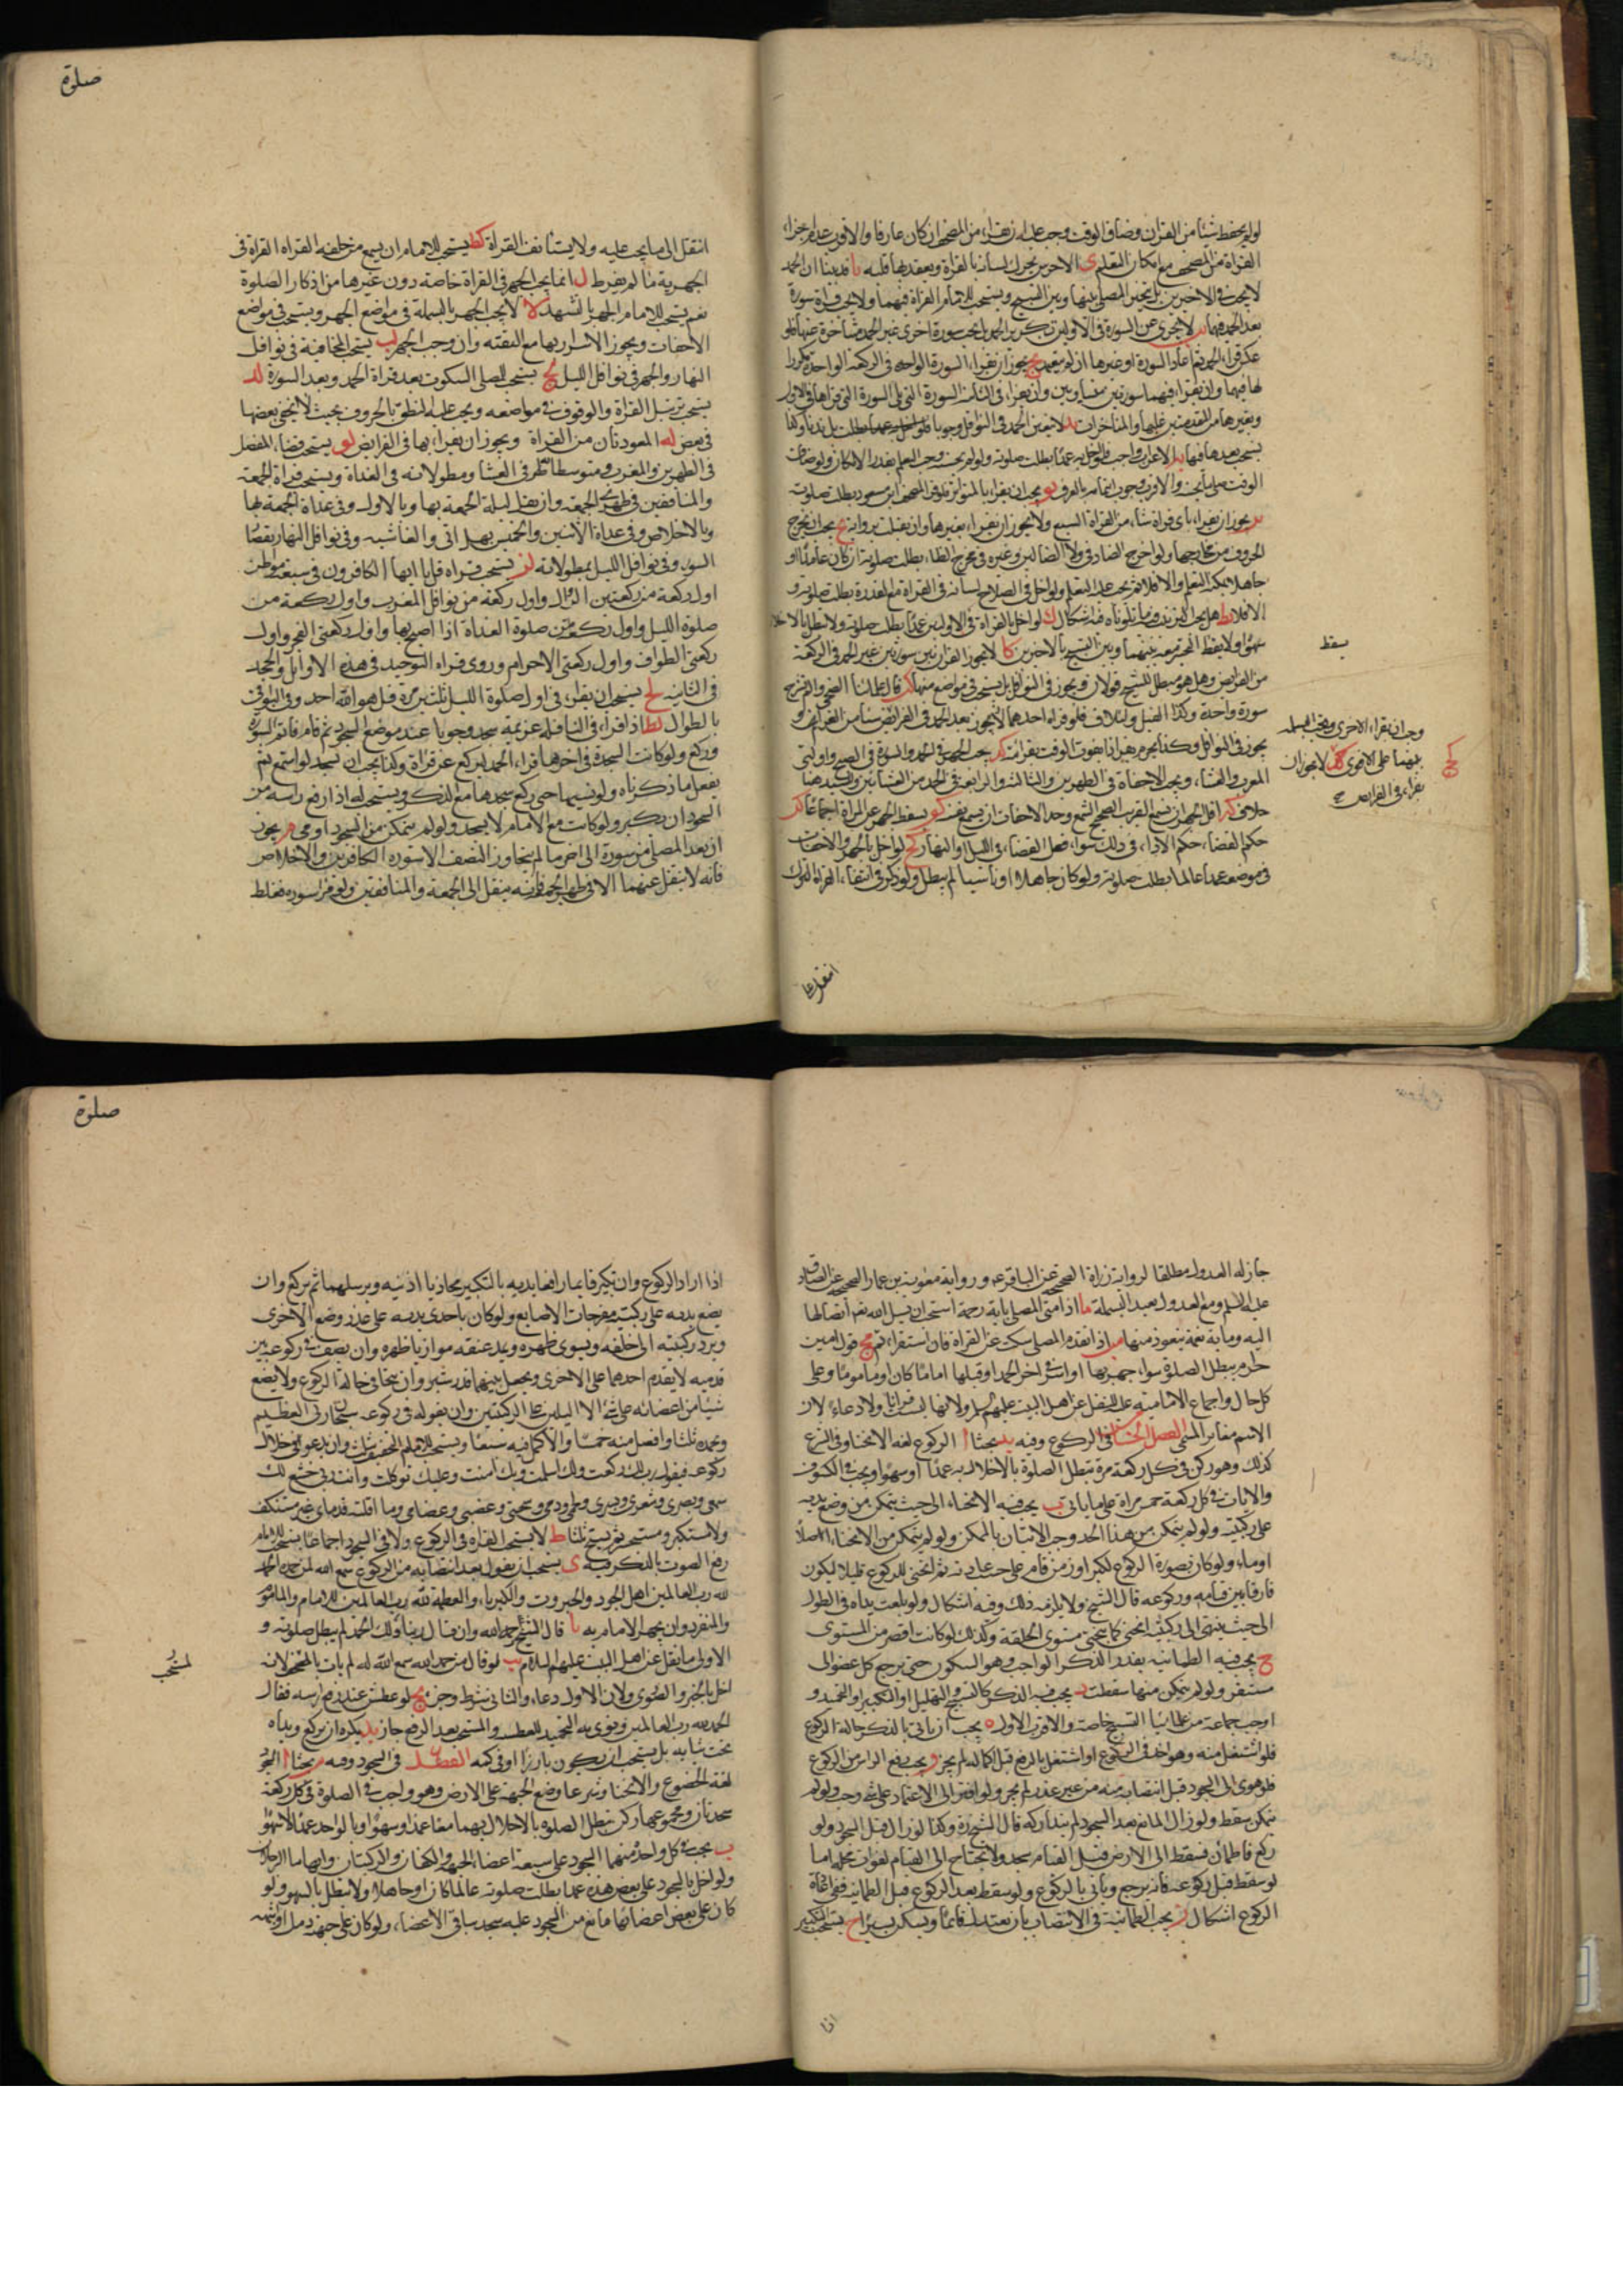 لو لم يحفظ شيئا من القرآن وضاق الوقت وجب عليه ان يقراء من المصحف ان كان عارفا والاقرب عدم اجزاء
القراءة من المصحف مع امكان التعلم ى الاخرس يحرك لسانه بالقراة ويعقد بها قلبه يا قد بينا ان الحمد
لا يجب في الاخيرتين بل يتخير المصلي بينها وبين التسبيح ويستحب للامام القراة فيهما ولا يجب قراة سورة
بعد الحمد فيهما يب لا يجزي عن السورة في الاوليين تكرير الحمد بل يجب سورة اخرى غير الحمد متأخرة عنها فلو
عكس قراء الحمد ثم اعاد السورة او غيرها ان لم يتعمد يج يجوز ان يقراء السورة الواحدة في الركعة الواحدة مكررا
لها فيهما وان يقراء فيهما سورتين متساويتين وان يقراء في الثانية السورة التي تلي السورة التي قراها في الاولى
الوقت صلى بما يحسنه يو يجب ان يقراء بالمتواتر فلو قراء بمصحف ابن مسعود بطلت صلوته
يز يجوز ان يقراء باى قراة شاء من القراة السبع ولا يجوز ان يقراء بغيرها وان نقلت برواية يح يجب ان يخرج
الحروف من مخارجها ولو اخرج الضاد في ولا الضالين وغيره من مخرج الظاء بطلت صلوته ان كان عامدا او
جاهلا يمكنه التعلم والا فلا نعم يجب عليه التعلم ولو اخل في اصلاح لسانه في القراة مع القدرة بطلت صلوته و
الا فلا يط هل يجب الترتيب فيما تلوناه فيه اشكال ك لو اخل بالقراة في الاوليين عمدا بطلت صلوته ولا تبطل بالاخلال
سهوا ولا يسقط التخيير معه بينهما وبين التسبيح بالاخيرتين كا لا يجوز القران بين سورتين غير الحمد في الركعة
من الفرائض وهل هو مبطل للشيخ قولان ويجوز في النوافل بل يستحب في مواضع منها كب قال علمائنا الضحى والم نشرح
سورة واحدة وكذا الفيل ولئيلاف فلو قراء احدهما لا يجوز بعد الحمد في الفرائض شيئا من العزائم و
يجوز في النوافل وكذا يحرم قراة ما يفوت الوقت بقراءته كد يجب الجهر في الحمد والسورة في الصبح واوليي
المغرب والعشاء ويجب الاخفاة في الظهرين والثالثة والرابعة في الحمد من العشائين
خلاف كه اقل الجهر ان يسمع القريب الصحيح السمع وحد الاخفات ان يسمع نفسه كو يسقط الجهر عن المراة اجماعا كز
حكم القضاء حكم الاداء في ذلك سواء فعل القضاء في الليل او النهار كح لو اخل بالجهر والاخفات
في موضعه عمدا عالما بطلت صلوته ولو كان جاهلا او ناسيا لم يبطل ولو ذكر في اثناء القراة الترك
سقط
وجب ان يقراء الاخرى وتجب البسملة
بينهما على الاقوى كج لا يجوز ان
يقراء في الفرائض صح
انتقل الى
صلوة
انتقل الى ما يجب عليه ولا يستأنف القراة كط يستحب للامام ان يسمع من خلفه القراة في
الجهرية ما لم يفرط ل انما يجب الجهر في القراة خاصة دون غيرها من اذكار الصلوة
نعم يستحب للامام الجهر بالتشهد لا لا يجب الجهر بالبسملة في مواضع الجهر ويستحب في مواضع
الاخفات ويجوز الاسرار بها مع التقية وان وجب الجهر لب يستحب المخافتة في نوافل
النهار والجهر في نوافل الليل لج يستحب للمصلي السكوت بعد قراة الحمد وبعد السورة لد
يستحب ترتيل القراة والوقوف في مواضعه ويجب عليه النطق بالحروف بحيث لا يخفي بعضها
في بعض له المعوذتان من القراة ويجوز ان يقراء بها في الفرايض لو يستحب قصار المفصل
في الظهرين والمغرب ومتوسطاته في العشاء ومطولاته في الغداة ويستحب قراة الجمعة
والمنافقين في ظهري الجمعة وان يقراء ليلة الجمعة بها وبالاولى وفي غداة الجمعة بها
وبالاخلاص وفي غداة الاثنين والخميس بهل اتى والغاشية وفي نوافل النهار بقصار
السور وفي نوافل الليل بمطولاته لز يستحب قراة قل يا ايها الكافرون في سبعة مواطن
اول ركعة من ركعتين الزوال واول ركعة من نوافل المغرب واول ركعة من
صلوة الليل واول ركعة من صلوة الغداة اذا اصبح بها واول ركعتي الفجر واول
ركعتي الطواف واول ركعتي الاحرام وروى قراة التوحيد في هذه الاوايل والجحد
في الثانية لح يستحب ان يقراء في اول صلوة الليل ثلثين مرة قل هو الله احد وفي البواقي
بالطوال لط اذا قراء في النافلة عزيمة سجد وجوبا عند موضع السجود ثم قام فاتم السورة
وركع ولو كانت السجدة في اخرها قراء الحمد ليركع عن قراة وكذا يجب ان يسجد لو استمع ثم
يفعل ما ذكرناه ولو نسيها حتى ركع سجدها مع الذكر ويستحب له اذا رفع راسه من
السجود ان يكبر ولو كانت مع الامام لا يسجد ولو لم يتمكن من السجود اومى م يجوز
ان يعدل المصلي من سورة الى اخرى ما لم يتجاوز النصف الا سورة الكافرين والاخلاص
فانه لا ينتقل عنهما الا في ظهر الجمعة فانه ينتقل الى الجمعة والمنافقين ولو قراء سورة فغلط
جاز له العدول مطلقا لرواية زرارة الصحيحة عن الباقر ع ورواية معوية بن عمار الصحيحة عن الصادق
عليه السلم ومع العدول يعيد البسملة ما اذا مر المصلي باية رحمة استحب ان يسئل الله تعالى ايصالها
اليه وباية نقمة يتعوذ منها مب اذا تقدم المصلي سكت عن القراة فاذا استقر اتم مج قول امين
حرام يبطل الصلوة سواء جهر بها او اسر في اخر الحمد او قبلها اماما كان او ماموما وعلى
كل حال واجماع الامامية عليه للنقل عن اهل البيت عليهم السلم ولانها ليست قرانا ولا دعاء لان
الاسم مغاير المسمى الفصل الخامس في الركوع وفيه يد بحثا ا الركوع لغة الانحناء وفي الشرع
كذلك وهو ركن في كل ركعة مرة تبطل الصلوة بالاخلال به عمدا او سهوا ويجب في الكسوف
والايات في كل ركعة خمس مراة على ما ياتي ب يجب فيه الانحناء الى حيث يتمكن من وضع يديه
على ركبتيه ولو لم يتمكن من هذا الحد وجب الاتيان بالممكن ولو لم يتمكن من الانحناء اصلا
اومأ ولو كان بصورة الركوع لكبر او زمن قام على حسب عادته ثم انحنى للركوع قليلا ليكون
فارقا بين قيامه وركوعه قال الشيخ ولا يلزمه ذلك وفيه اشكال ولو بلغت يداه في الطول
الى حيث ينتهي الى ركبتيه انحنى كما ينحني مستوي الخلقة وكذلك لو كانت اقصر من المستوى
ج يجب فيه الطمانينة بقدر الذكر الواجب وهو السكون حتى يرجع كل عضو الى
مستقره ولو لم يتمكن منها سقطت د يجب فيه الذكر كالتسبيح والتهليل او التكبير او التحميد و
اوجب جماعة من علمائنا التسبيح خاصة والاقرب الاول ه يجب ان ياتي بالذكر حالة الركوع
فلو اشتغل منه وهو اخذ في الركوع او اشتغل بالرفع قبل اكماله لم يجز و يجب رفع الراس من الركوع
فلو هوى الى السجود قبل انتصابه منه من غير عذر لم يجز ولو افتقر الى الاعتماد على شيء وجب ولو لم
يتمكن سقط ولو زال المانع بعد السجود لم يتداركه قال الشيخ ره وكذا لو زال قبل السجود ولو
ركع فاطمأن فسقط الى الارض قبل القيام سجد ولا يحتاج الى القيام لفوات محله اما
لو سقط قبل ركوعه فانه يرجع ويأتي بالركوع ولو سقط بعد الركوع قبل الطمانينة ففي اعادة
الركوع اشكال ز يجب الطمانينة في الانتصاب بان يعتدل قائما ويسكن يسيرا ح يستحب التكبير
اذا
صلوة
اذا اراد الركوع وان يكبر قايما رافعا يديه بالتكبير محاذيا اذنيه ويرسلهما ثم يركع وان
يضع يديه على ركبتيه مفرجات الاصابع ولو كان باحدى يديه علة عذر وضع الاخرى
ويرد ركبتيه الى خلفه ويسوى ظهره ويمد عنقه موازيا ظهره وان يصف في ركوعه بين
قدميه لا يقدم احدهما على الاخرى ويجعل بينهما قدر شبر وان يتجافى حالة الركوع ولا يضع
شيئا من اعضائه على شيء الا اليدين على الركبتين وان يقول في ركوعه سبحان ربي العظيم
وبحمده ثلثا وافضل منه خمسا والاكمل فيه سبعا ويستحب للامام التخفيف بثلث وان يدعو في خلال
ركوعه فيقول رب لك ركعت ولك اسلمت وبك امنت وعليك توكلت وانت ربي خشع لك
سمعي وبصري وشعري وبشري ولحمي ودمي ومخي وعصبي وعظامي وما اقلته قدماي غير مستنكف
ولا مستكبر ولا مستحسر ثم يسبح ثلثا ط لا يستحب القراة في الركوع ولا في السجود اجماعا يستحب للامام
رفع الصوت بالذكر فيه ى يستحب ان يقول بعد انتصابه من الركوع سمع الله لمن حمده الحمد
لله رب العالمين اهل الجود والجبروت والكبرياء والعظمة لله رب العالمين للامام والماموم
والمنفرد وان يجهر الامام به يا قال الشيخ رحمه الله وان قال ربنا ولك الحمد لم يبطل صلوته و
الاولى ما نقل عن اهل البيت عليهم السلام يب لو قال من حمد الله سمع الله له لم يات بالمستحب لانه
اخل بالجزء الصوري ولان الاول دعاء والثاني شرط وجزاء يج لو عطس عند رفع راسه فقال
الحمد لله رب العالمين ونوى به التحميد للعطسة والمستحب بعد الرفع جاز يد يكره ان يركع ويداه
تحت ثيابه بل يستحب ان يكون بارزا او في كمه الفصل السادس في السجود وفيه بحثا ا السجود
لغة الخضوع والانحناء وشرعا وضع الجبهة على الارض وهو واجب في الصلوة في كل ركعة
سجدتان ومجموعهما ركن تبطل الصلوة بالاخلال بهما معا عمدا وسهوا وبالواحدة عمدا لا سهوا
ب يجب في كل واحدة منهما السجود على سبعة اعضاء الجبهة والكفان والركبتان وابهاما الرجلين
ولو اخل بالسجود على بعض هذه عمدا بطلت صلوته عالما كان او جاهلا ولا تبطل بالسهو ولو
كان على بعض اعضائها مانع من السجود عليه سجد بباقي الاعضاء ولو كان على جبهته دمل او شبهه
لمستحب